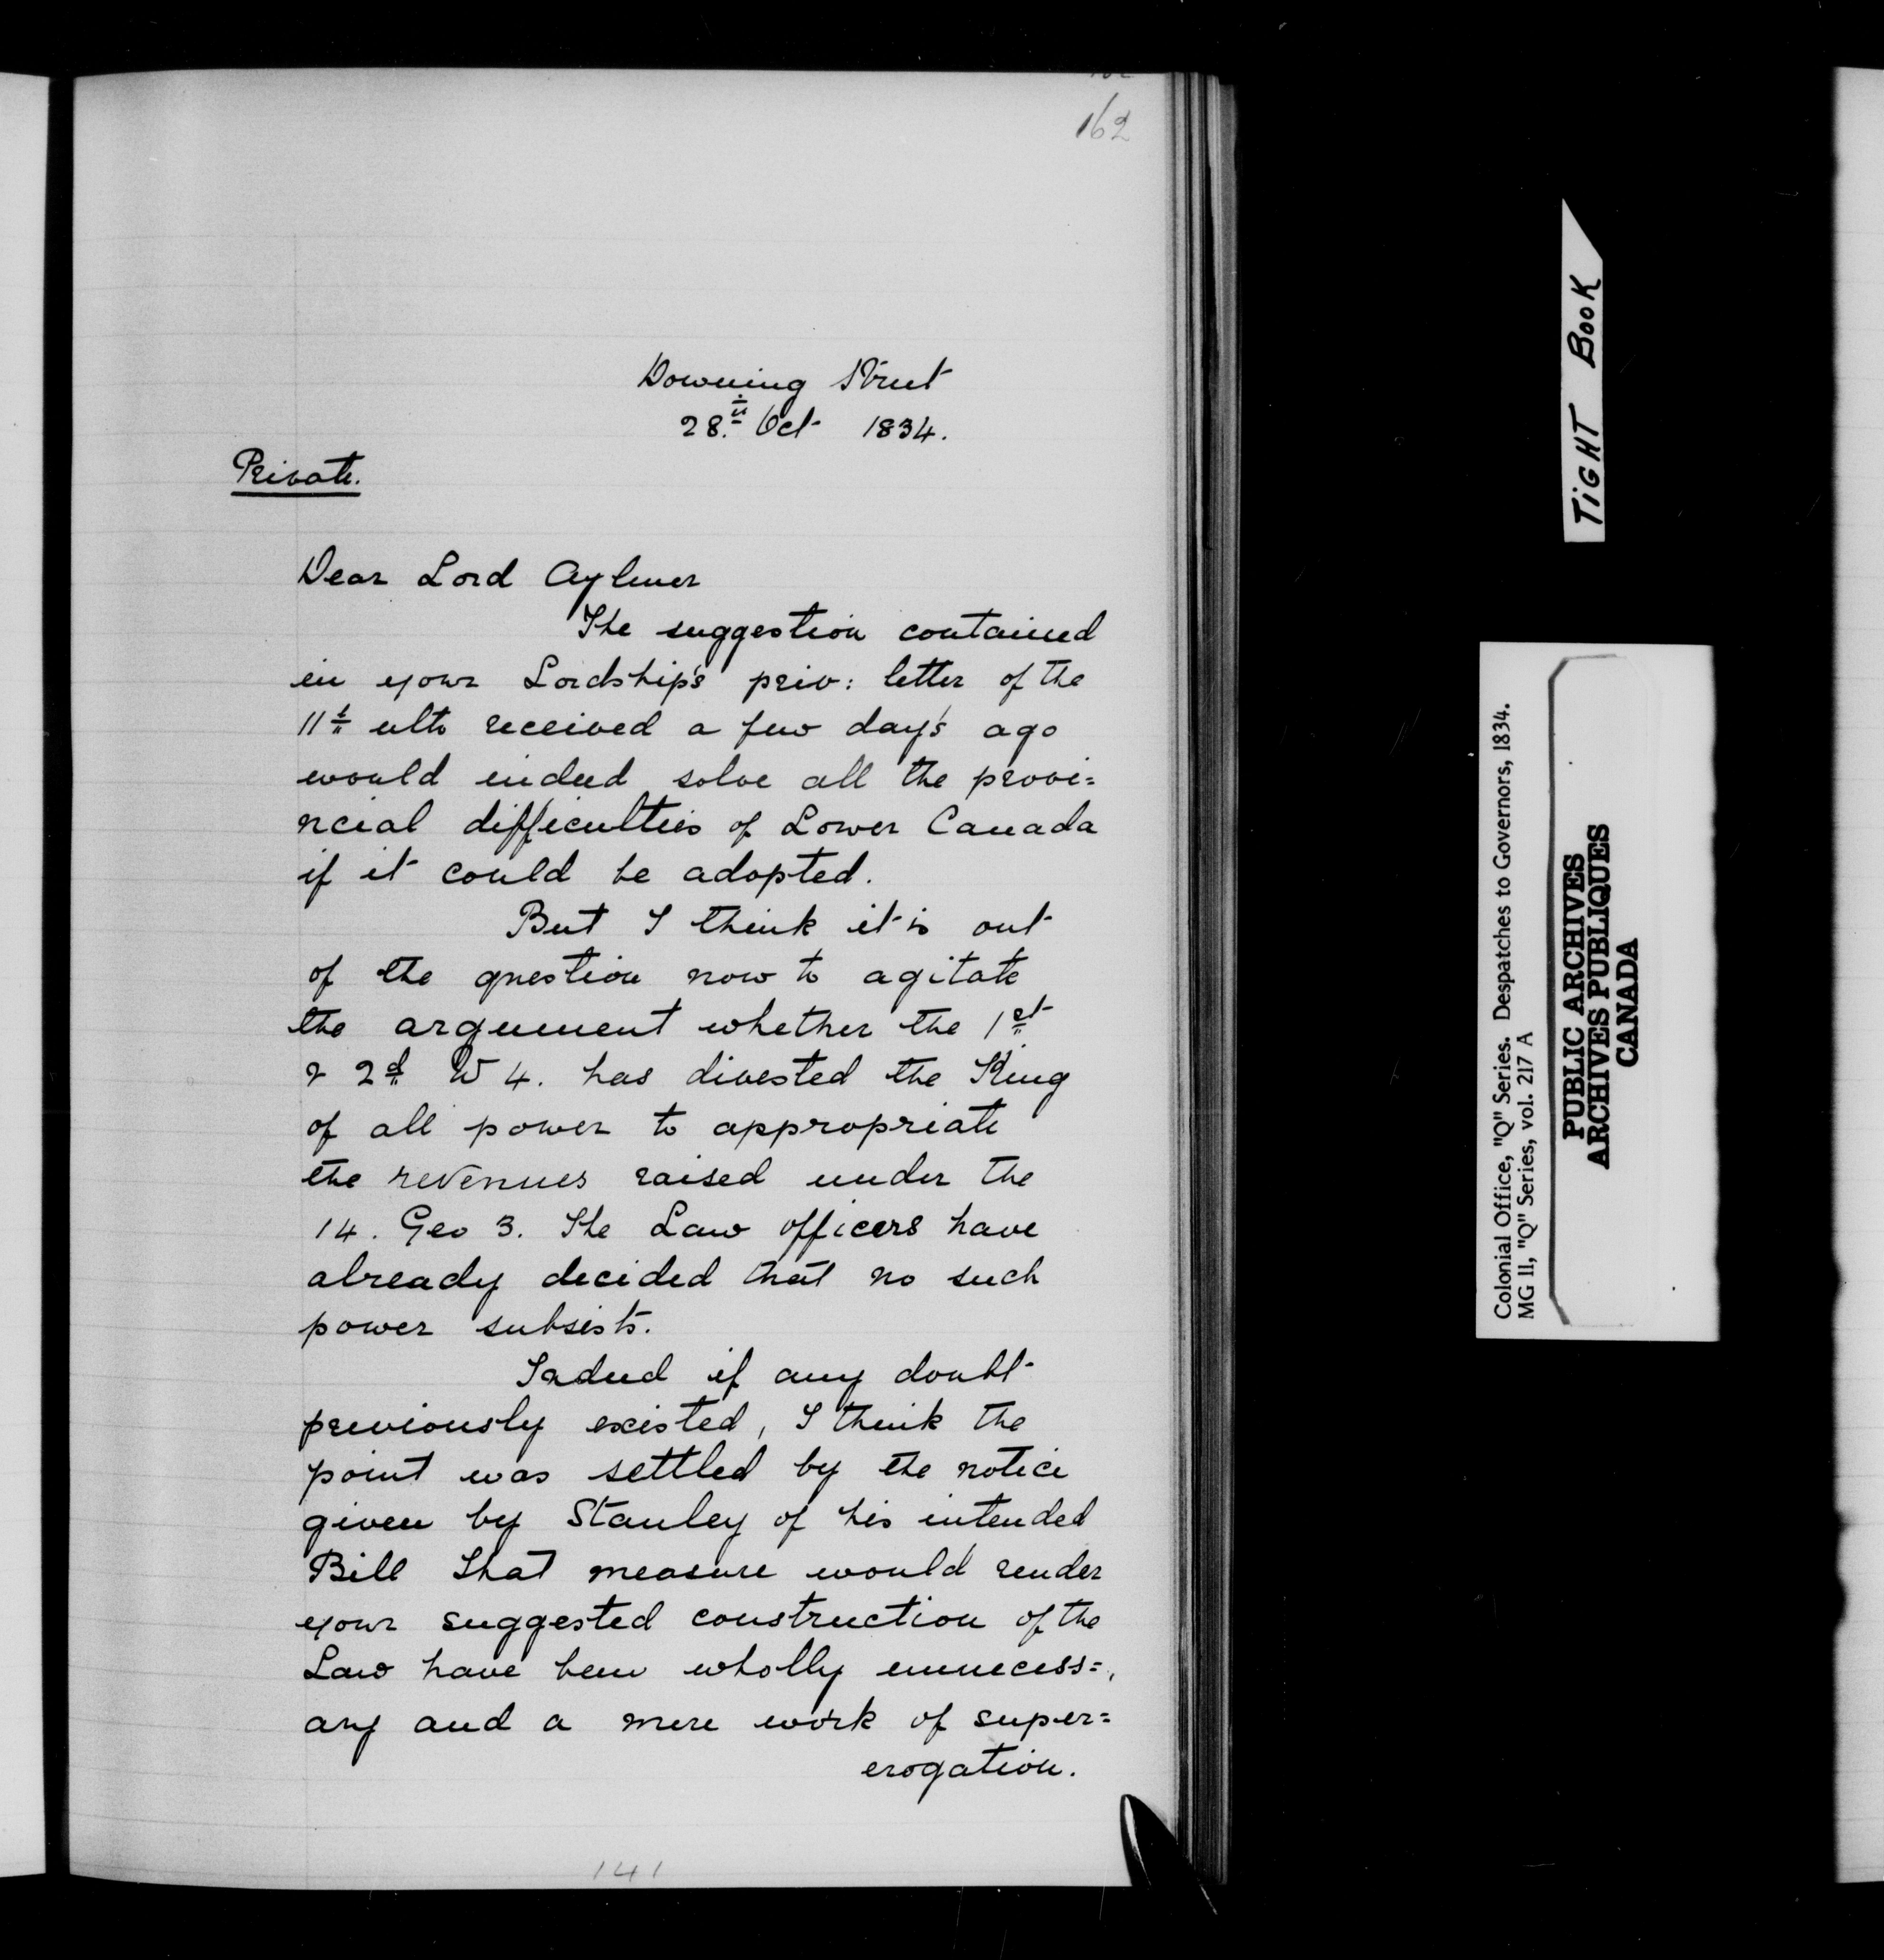 162
Downing Street
28.th Oct 1834.
Private.
Dear Lord Aylmer
The suggestion contained
in your Lordship's priv: letter of the
11th ulto received a few day's ago
would indeed solve all the provi=
ncial difficulties of Lower Canada
if it could be adopted.
But I think it is out
of the question now to agitate
the argument whether the 1st
& 2d W 4. has divested the King
of all power to appropriate
the revenues raised under the
14. Geo 3. The Law officers have
already decided that no such
power subsists.
Indeed if any doubt
previously existed, I think the
point was settled by the notice
given by Stanley of his intended
Bill That measure would render
your suggested construction of the
Law have been wholly unnecess=
ary and a mere work of super=
erogation.
141
TIGHT BOOK
Colonial Office, "Q" Series. Despatches to Governors, 1834.
MG 11, "Q" Series, vol. 217 A
PUBLIC ARCHIVES
ARCHIVES PUBLIQUES
CANADA